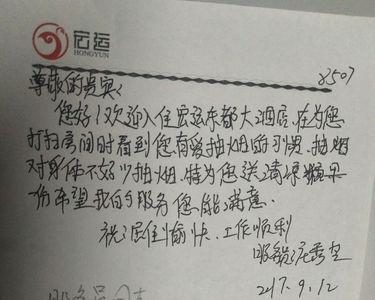 宏运
HONGYUN
8507
尊敬的贵宾：
您好！欢迎入住宏运东都大酒店，在为您
打扫房间时看到您有爱抽烟的习惯，抽烟
对身体不好少抽烟，特为您送清凉糖果
一份希望我的服务您能满意。
祝：居住愉快、工作顺利
服务员
217.9.12